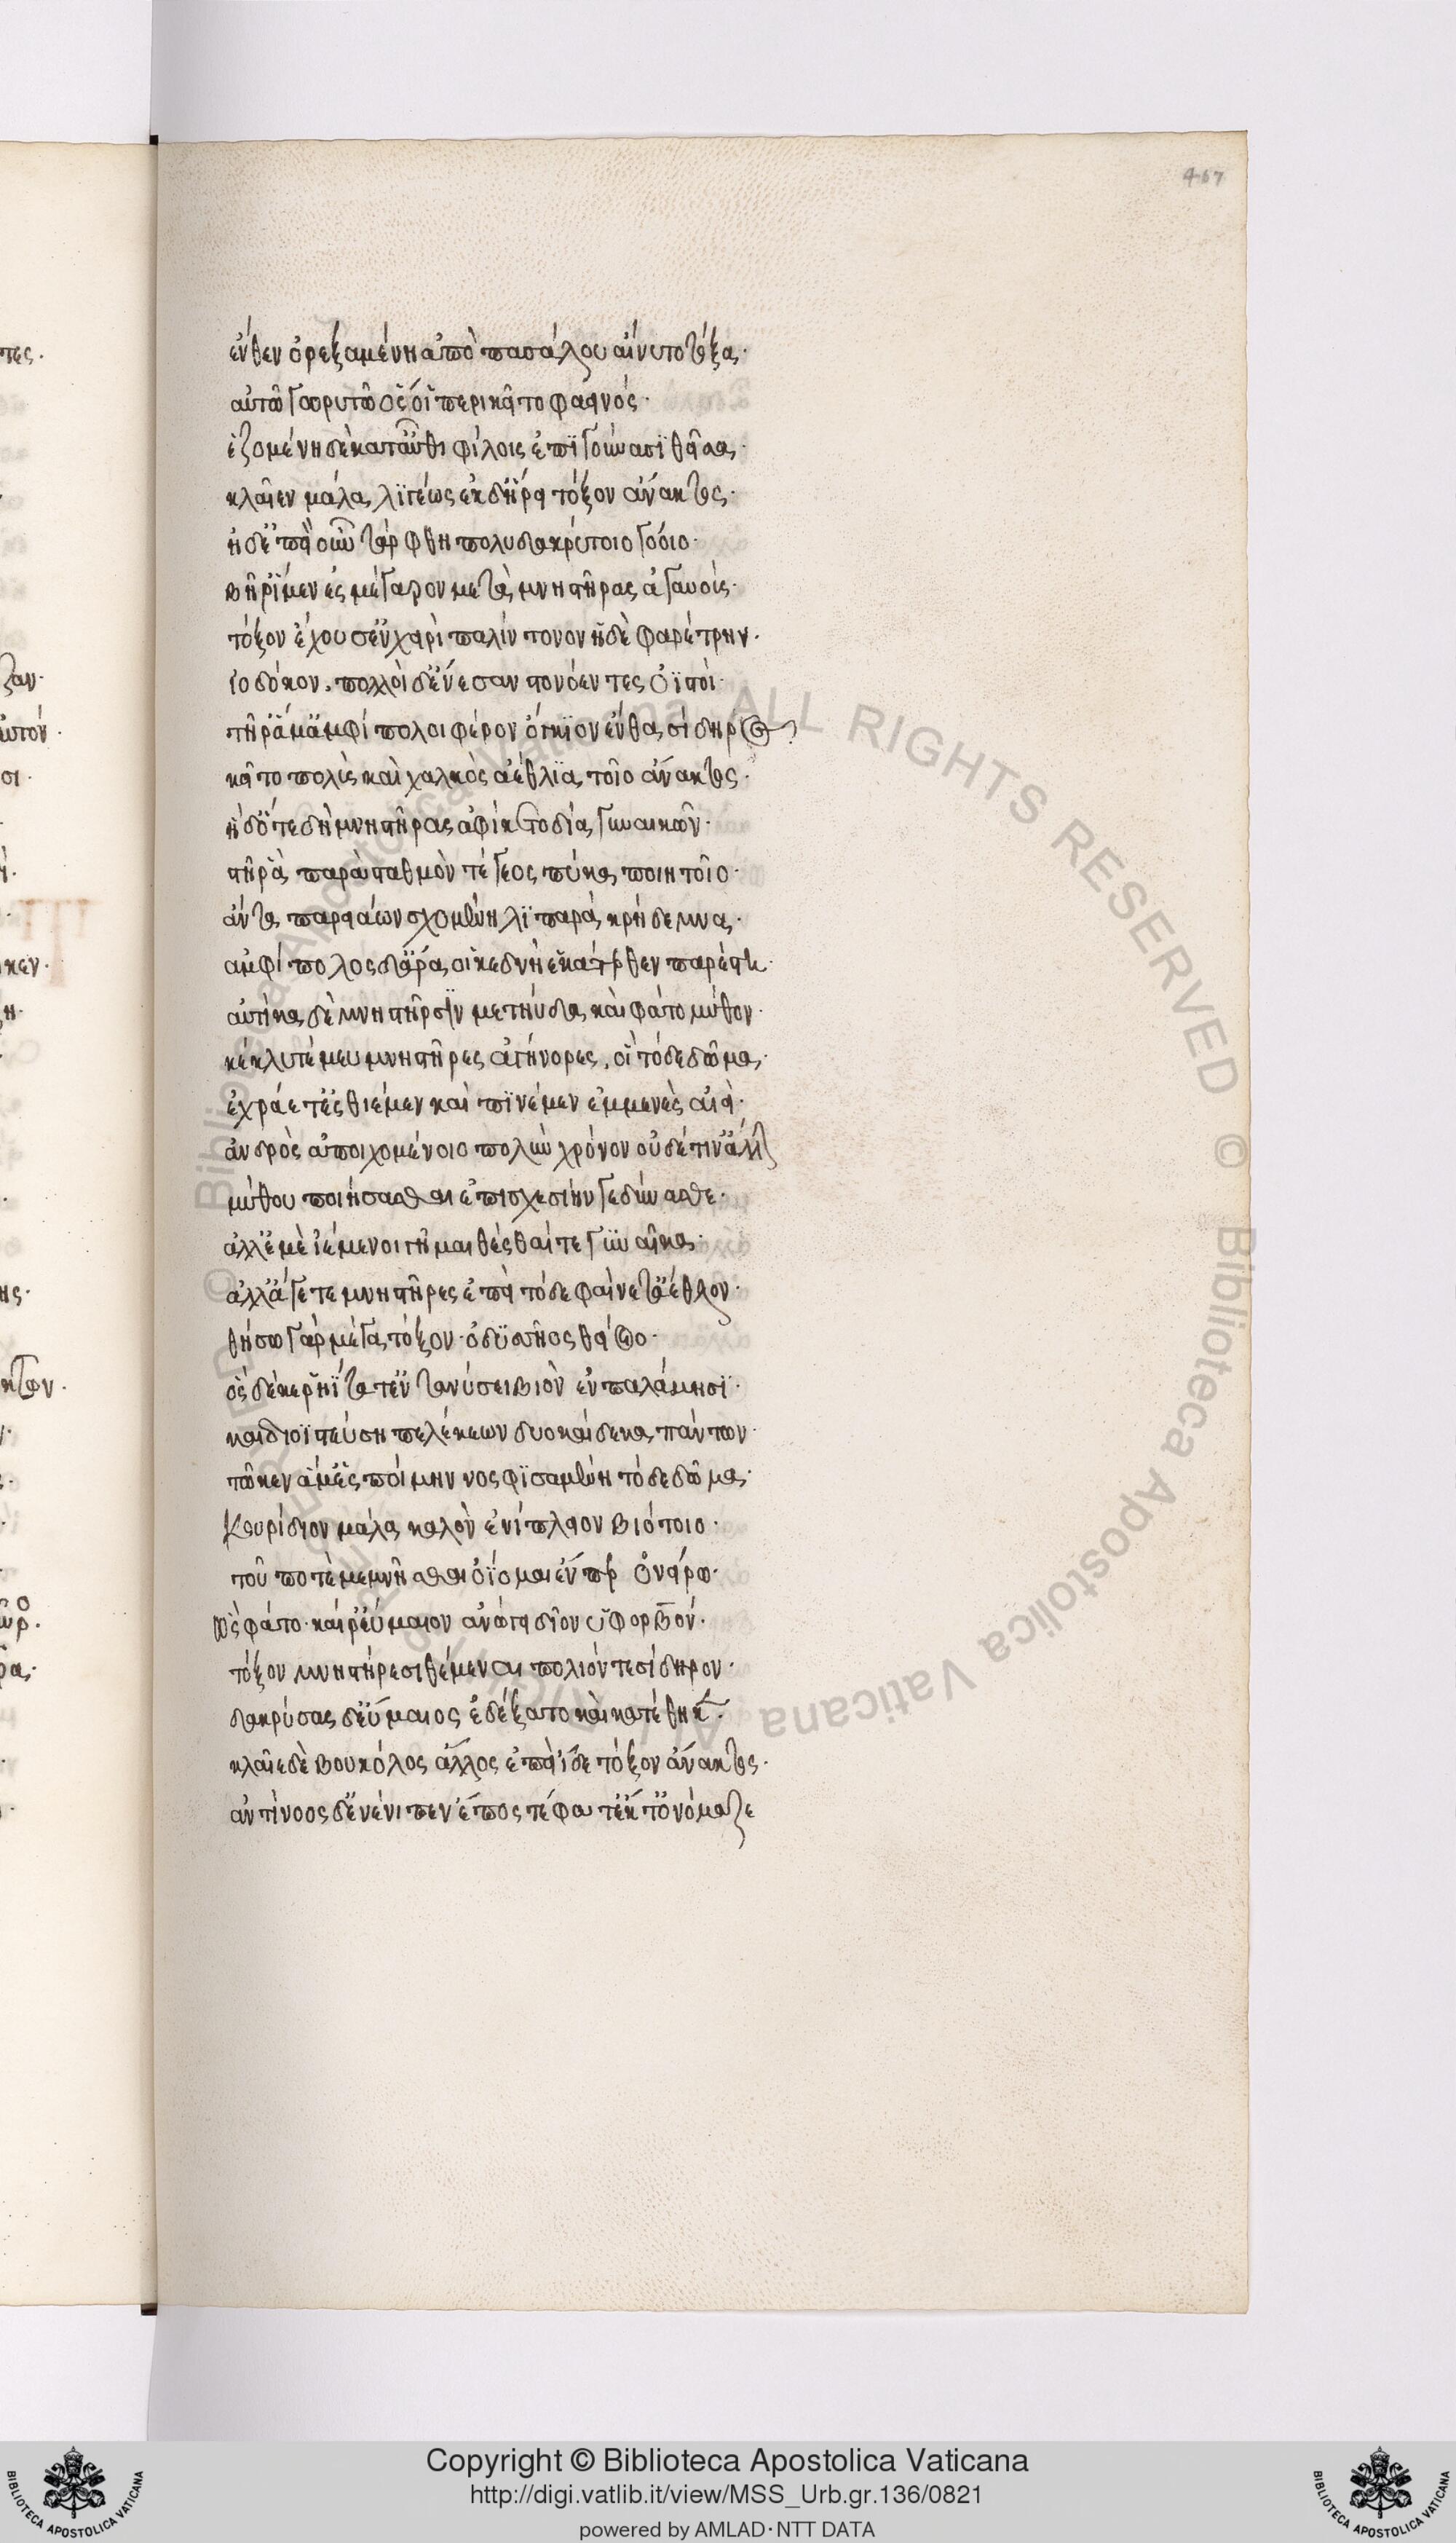 467
ἔνθεν ὀρεξαμένη ἀπὸ πασάλου αἴνυτο τόξα·
αὐτῶ γωρυτῶ ὅς οἱ περικεῖτο φαεινός·
ἑζομένη δὲ κατ' αὖθι φίλοις ἐπὶ γούνασι θεῖσα·
κλαῖεν μάλα λιγέως ἐκ δ' ἥρει τόξον ἄνακτος·
ἡ δ' ἐπεὶ οὖν τάρφθη πολυδακρύτοιο γόοιο·
βῆ ῥ' ἴμεν ἐς μέγαρον μετὰ μνηστῆρας ἀγαυούς·
τόξον ἔχουσ' ἐν χειρὶ παλίντονον ἠδὲ φαρέτρην·
ἰοδόκον. πολλοὶ δ' ἔνεσαν στονόεντες ὀϊστοί·
τῆ ῥ' ἅμ' ἀμφίπολοι φέρον ὄγκιον ἔνθα σίδηρος
κεῖτο πολὺς καὶ χαλκὸς ἀέθλια τοῖο ἄνακτος·
ἡ δ' ὅτε δὴ μνηστῆρας ἀφίκετο δία γυναικῶν·
στῆ ῥὰ παρὰ σταθμὸν τέγεος πύκα ποιητοῖο·
ἄντα παρειάων σχομένη λιπαρὰ κρήδεμνα·
ἀμφίπολος δ' ἄρα οἱ κεδνὴ ἑκάτερθεν παρέστη·
αὐτίκα δὲ μνηστῆρσιν μετηύδα καὶ φάτο μῦθον·
κέκλυτέ μευ μνηστῆρες ἀγήνορες, οἳ τόδε δῶμα·
ἐχράετ' ἐσθιέμεν καὶ πινέμεν ἐμμενὲς αἰεί·
ἀνδρὸς ἀποιχομένοιο πολὺν χρόνον οὐδέ τιν' ἄλλην
μύθου ποιήσασθαι ἐπισχεσίην ἐδύνασθε·
ἀλλ' ἐμὲ ἱέμενοι γῆμαι θέσθαι τε γυναῖκα·
ἀλλ' ἄγετε μνηστῆρες ἐπεὶ τόδε φαίνετ' ἄεθλον·
θήσω γὰρ μέγα τόξον ὀδυσσῆος θείοιο·
ὃς δέ κε ῥηΐτατ' ἐντανύσει βιὸν ἐν παλάμησι·
καὶ διοϊστεύση πελέκεων δυοκαίδεκα πάντων·
τῶ κεν ἅμ' ἑσποίμην νοσφισαμένη τόδε δῶμα·
κουρίδιον μάλα καλὸν ἐνίπλειον βιότοιο·
τοῦ ποτὲ μεμνήσεσθαι ὀΐομαι ἔν περ ὀνείρω·
ὣς φάτο· καί ῥ' εὔμαιον ἀνώγει δῖον ὑφορβόν·
τόξον μνηστήρεσι θέμεναι πολιόν τε σίδηρον·
δακρύσας δ' εὔμαιος ἐδέξατο καὶ κατέθηκε·
κλαῖε δὲ βουκόλος ἄλλος ἐπεὶ ἴδε τόξον ἄνακτος·
ἀντίνοος δ' ἐνένιπεν ἔπος τ' ἔφατ' ἔκ τ' ὀνόμαζε
Copyright © Biblioteca Apostolica Vaticana
http://digi.vatlib.it/view/MSS_Urb.gr.136/0821
powered by AMLAD·NTT DATA